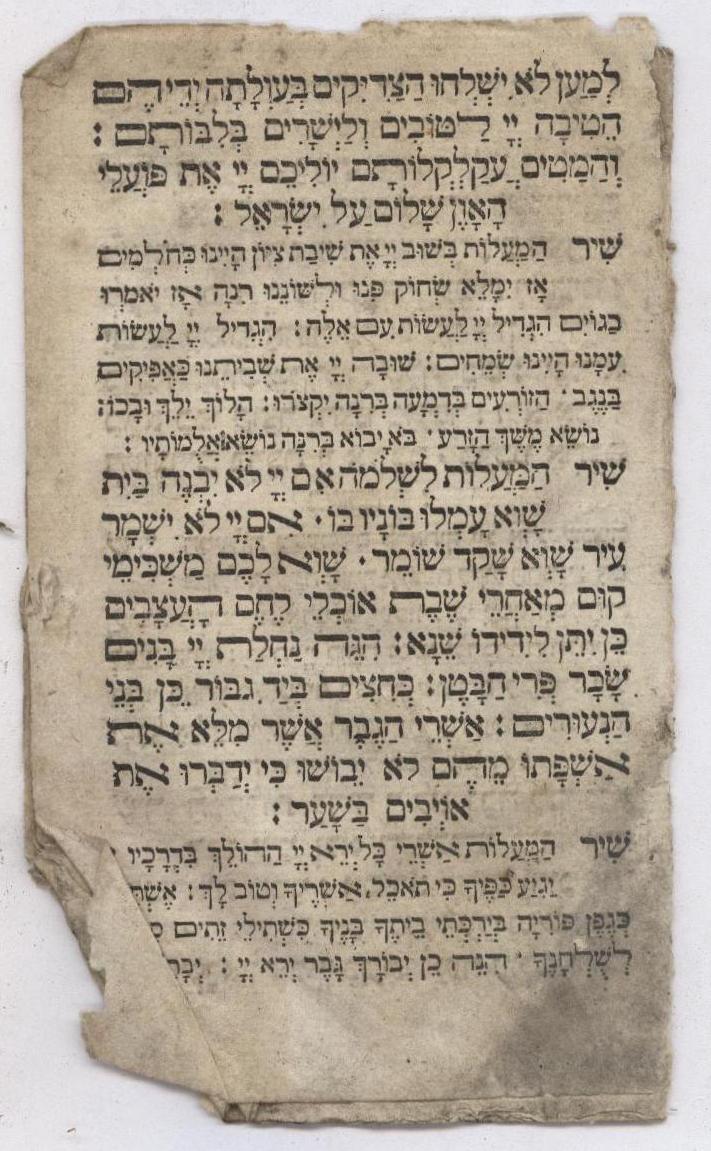 לְמַעַן לֹא יִשְׁלְחוּ הַצַּדִּיקִים בְּעַוְלָתָה יְדֵיהֶם
הֵטִיבָה יְיָ לַטּוֹבִים וְלִישָׁרִים בְּלִבּוֹתָם :
וְהַמַטִים עֲקַלְקְלוֹתָם יוֹלִיכֵם יְיָ אֶת פּוֹעֲלֵי
הָאָוֶן שָׁלוֹם עַל יִשְׂרָאֵל :
שִׁיר הַמַעֲלוֹת בְּשׁוּב יְיָ אֶת שִׁיבַת צִיּוֹן הָיִינוּ כְּחֹלְמִים
אָז יִמָלֵא שְׂחוֹק פִּנוּ וּלְשׁוֹנֵנוּ רִנָה אָז יֹאמְרוּ
בַגוֹיִם הִגְדִיל יְיָ לַעֲשׂוֹת עִם אֵלֶה : הִגְדִיל יְיָ לַעֲשׂוֹת
עִמָנוּ הָיִינוּ שְׂמֵחִים : שׁוּבָה יְיָ אֶת שְׁבִיתֵנוּ כַּאֲפִיקִים
בַּנֶגֶב · הַזוֹרְעִים בְּדִמְעָה בְּרִנָה יִקְצֹרוּ : הָלוֹךְ יֵלֵךְ וּבָכֹה :
נוֹשֵׂא מֶשֶׁךְ הַזָרַע · בֹּא יָבוֹא בְרִנָה נוֹשֵׂא אֲלֻמוֹתָיו :
שִׁיר הַמַעֲלוֹת לִשְׁלֹמֹה אִם יְיָ לֹא יִבְנֶה בַיִת
שָׁוְא עָמְלוּ בוֹנָיו בּוֹ · אִם יְיָ לֹא יִשְׁמָר
עִיר שָׁוְא שָׁקַד שׁוֹמֵר · שָׁוְא לָכֶם מַשְׁכִּימֵי
קוּם מְאַחֲרֵי שֶׁבֶת אוֹכְלֵי לֶחֶם הָעֲצָבִים
כֵּן יִתֵּן לִידִידוֹ שֵׁנָא : הִנֵה נַחֲלַת יְיָ בָּנִים
שָׂכָר פְּרִי הַבָּטֶן : כְּחִצִים בְּיַד גִבּוֹר כֵּן בְּנֵי
הַנְעוּרִים : אַשְׁרֵי הַגֶבֶר אֲשֶׁר מִלֵא אֶת
אַשְׁפָּתוֹ מֵהֶם לֹא יֵבוֹשׁוּ כִּי יְדַבְּרוּ אֶת
אוֹיְבִים בַּשָׁעַר :
שִׁיר הַמַעֲלוֹת אַשְׁרֵי כָּל יְרֵא יְיָ הַהוֹלֵךְ בִּדְרָכָיו
יְגִיעַ כַּפֶּיךָ כִּי תֹאכֵל אַשְׁרֶיךָ וְטוֹב לָךְ :
כְּגֶפֶן פּוֹרִיָה בְּיַרְכְּתֵי בֵיתֶךָ בָּנֶיךָ כִּשְׁתִילֵי זֵתִים
לְשֻׁלְחָנֶךָ · הִנֵה כֵן יְבוֹרַךְ גָבֶר יְרֵא יְיָ :